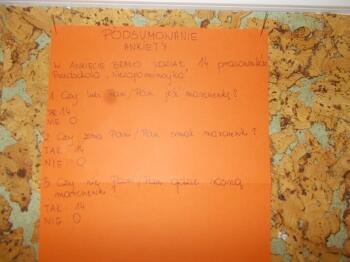 PODSUMOWANIE
ANKIETY
W ANKIECIE BRAŁO UDZIAŁ 14 pracowników
Przedszkola "Niezapominajka"
1. Czy lubi Pan/Pani jeść marchewkę?
TAK 14
NIE 0
2. Czy zna Pani/Pan smak marchewki?
TAK 14
NIE 0
3. Czy wie Pani/Pan gdzie rosną
marchewki
TAK 14
NIE 0